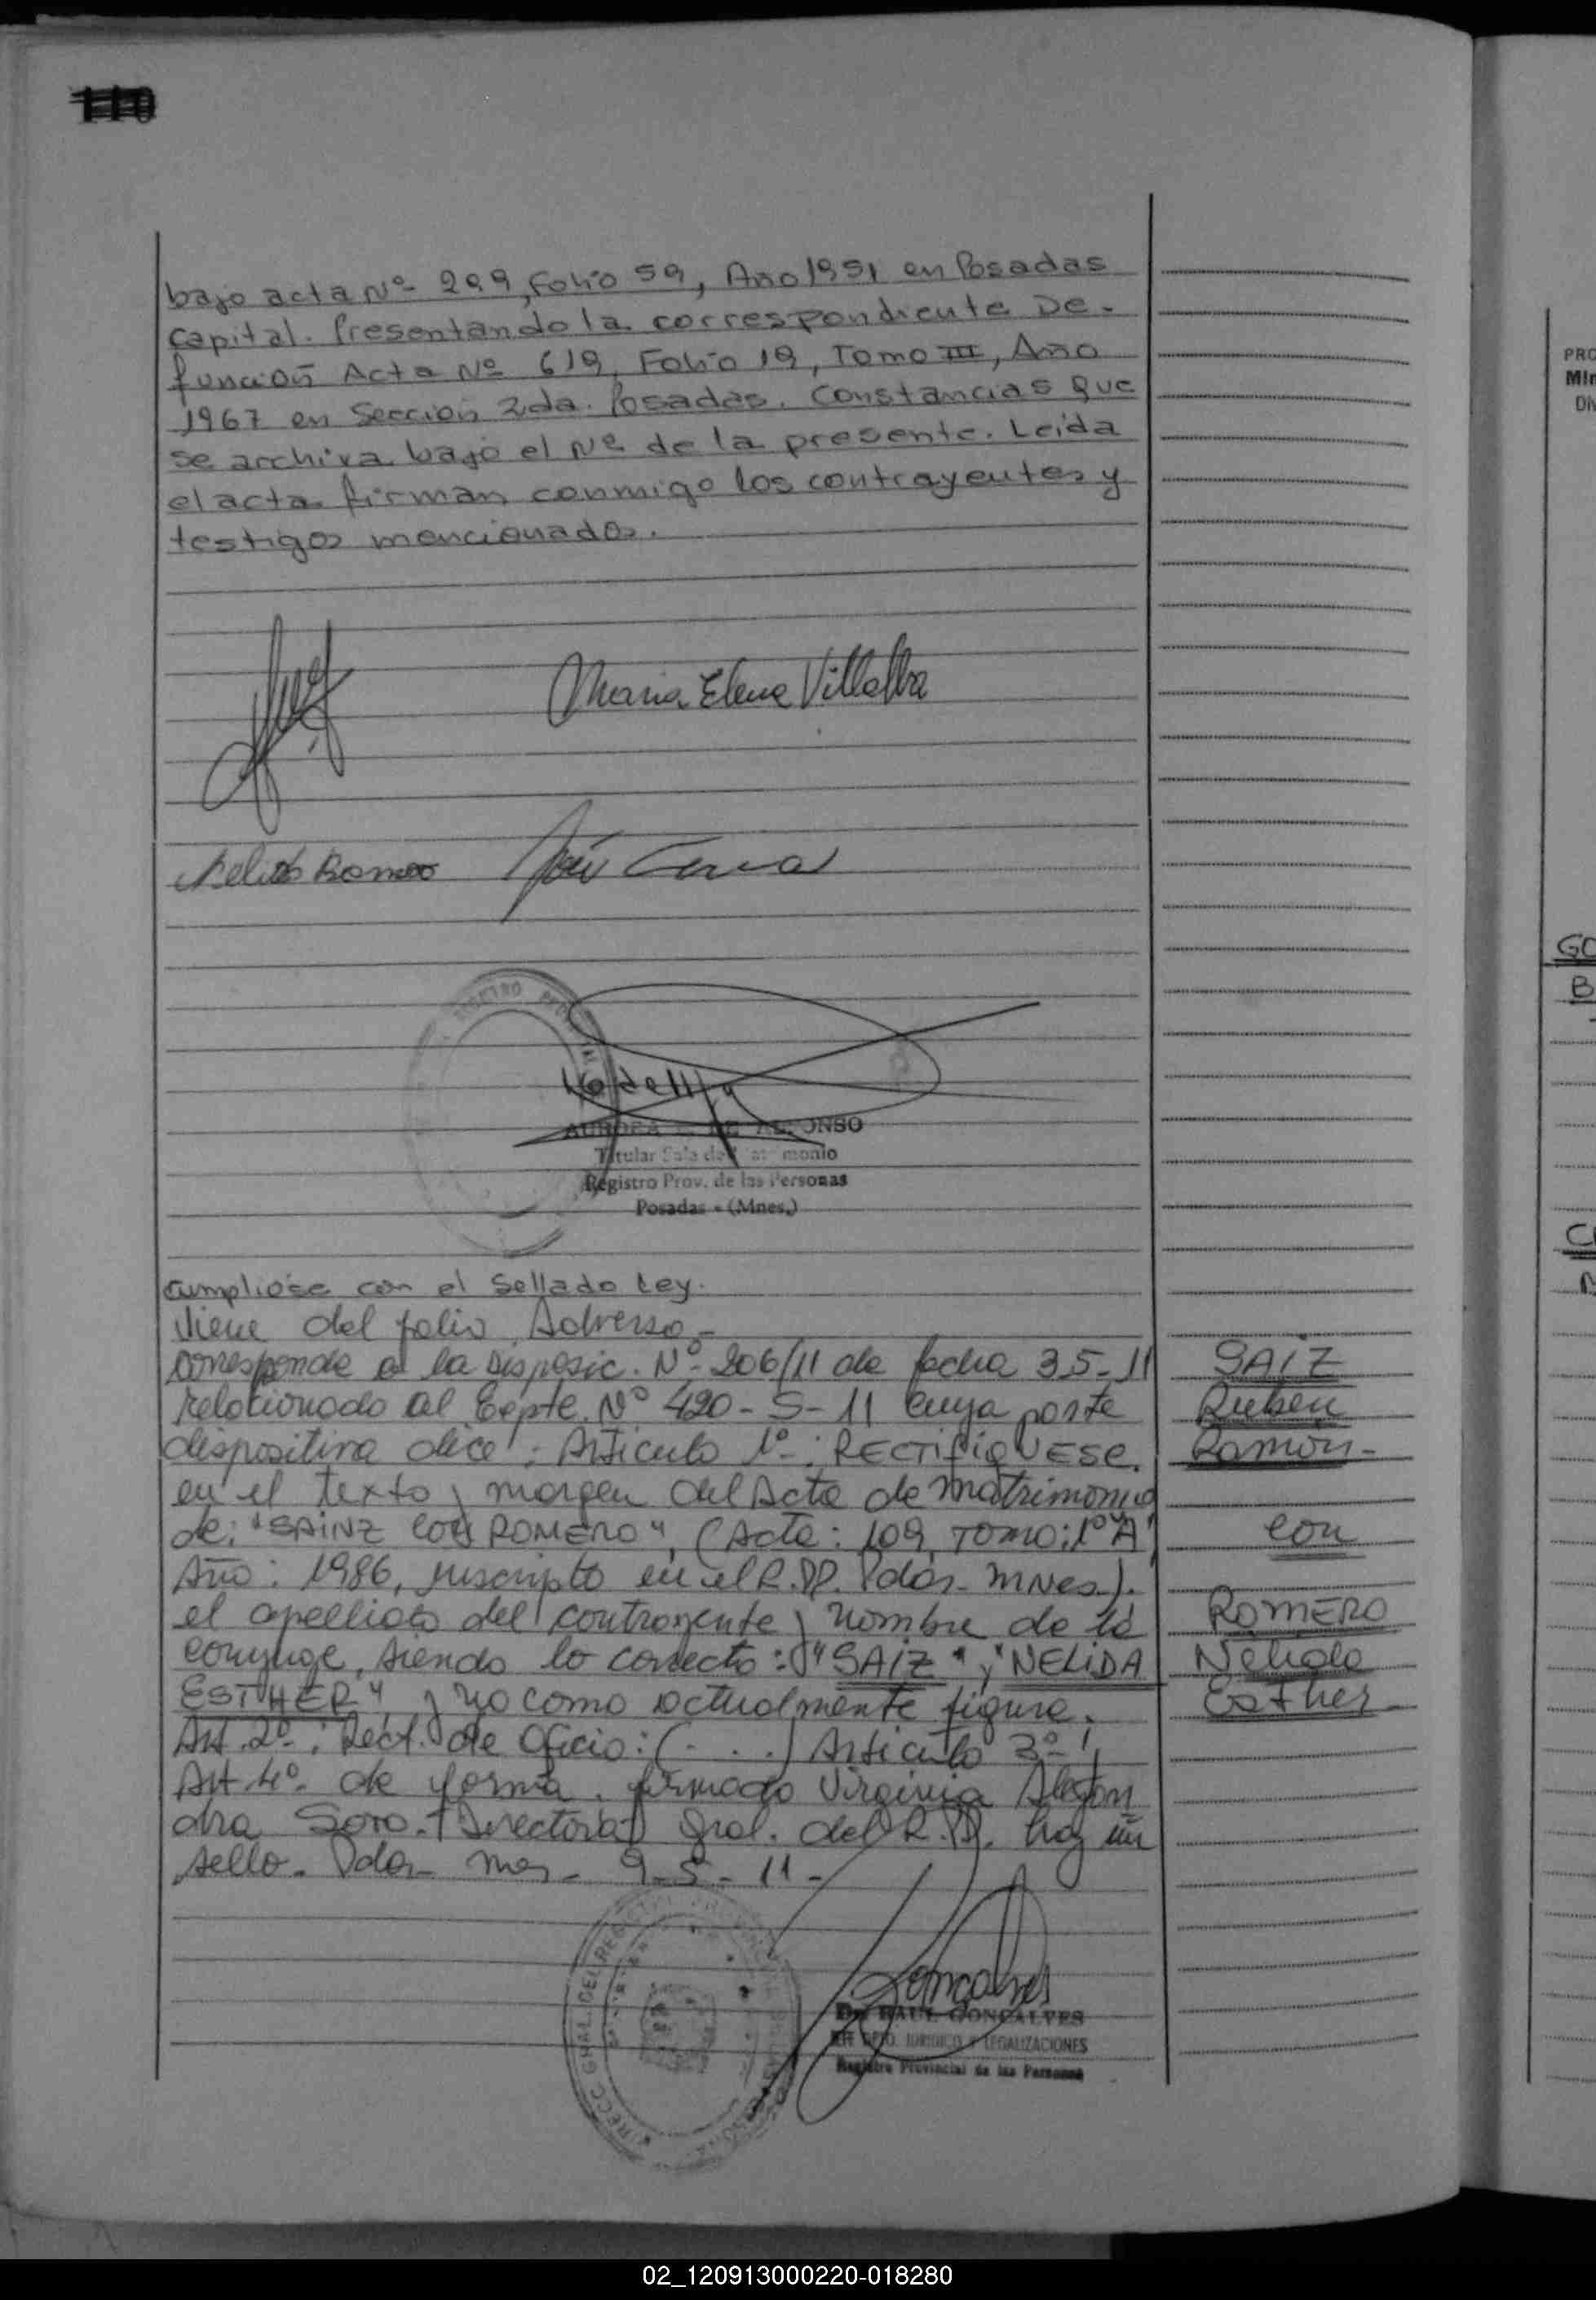 110
bajo acta Nº 299, Folio 59, Año 1951 en Posadas
Capital. Presentando la correspondiente De-
función Acta Nº 619, Folio 19, Tomo III, Año
1967 en Sección 2da. Posadas. Constancias que
se archiva bajo el Nº de la presente. Leida
el acta firman conmigo los contrayentes y
testigos mencionados.
Maria Elena Villalba
Nelida Romero
REGISTRO
AURORA DE ALFONSO
Titular Sala de Matrimonio
Registro Prov. de las Personas
Posadas - (Mnes.)
Cumplióse con el Sellado Ley.
Viene del folio Adverso.-
Corresponde a la Disposic. Nº 206/11 de fecha 3-5-11
relacionado al Expte. Nº 420-S-11 cuya parte
dispositiva dice: Articulo 1º-: RECTIFIQUESE.
en el texto y margen del Acta de Matrimonio
de: "SAINZ con ROMERO", (Acta: 109, TOMO: 1º "A"
Año: 1986, inscripto en el R.P.P. Pdas- Mnes.).
el apellido del contrayente y nombre de la
conyuge, siendo lo correcto: "SAIZ" y "NELIDA
ESTHER", y no como actualmente figura.
Art. 2º-: Rect. de Oficio: (. . .) Articulo 3º-
Art. 4º- de forma. firmado Virginia Alejan
dra Soro.- Directora Gral. del R.P. hay un
sello- Pdas- Mnes- 9-5-11-
SAIZ
Ruben
Ramón-
con
ROMERO
Nelida
Esther-
Goncalves
Dr. RAUL GONCALVES
DPTO. JURIDICO Y LEGALIZACIONES
Registro Provincial de las Personas
DIRECC. GRAL. DEL REGISTRO
PRO
Min
GO
B
02_120913000220-018280